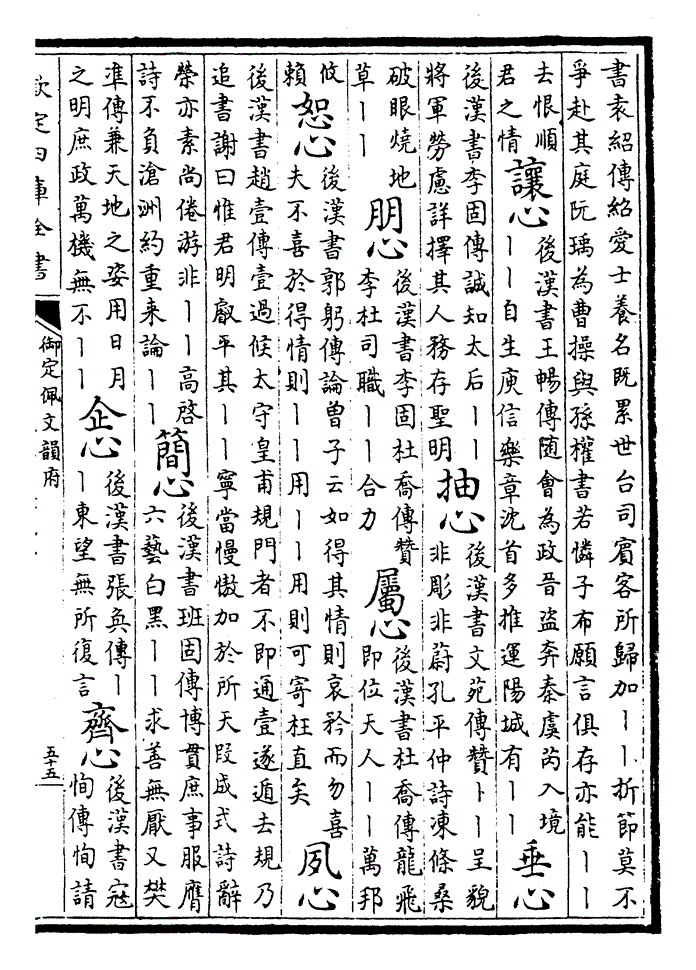 書袁紹傳紹愛士養名既累世台司賓客所歸加丨丨折節莫不
爭赴其庭阮瑀為曹操與孫權書若憐子布願言俱存亦能丨丨
去恨順
君之情
讓心
後漢書王暢傳随會為政晉盜奔秦虞芮入境
丨丨自生庾信樂章沈首多推運陽城有丨丨
垂心
後漢書李固傳誠知太后丨丨
將軍勞慮詳擇其人務存聖明
抽心
後漢書文苑傳贊丨丨呈貌
非彫非蔚孔平仲詩凍條桑
破眼燒地
草丨丨
朋心
後漢書李固杜喬傳贊
李杜司職丨丨合力
屬心
後漢書杜喬傳龍飛
即位天人丨丨萬邦
攸
賴
恕心
後漢書郭躬傳論曽子云如得其情則哀矜而勿喜
夫不喜於得情則丨丨用丨丨用則可寄枉直矣
夙心
後漢書趙壹傳壹過候太守皇甫規門者不即通壹遂遁去規乃
追書謝曰惟君明叡平其丨丨寧當慢慠加於所天段成式詩辭
榮亦素尚倦游非丨丨高啓
詩不負滄洲約重来論丨丨
簡心
後漢書班固傳博貫庶事服膺
六藝白黒丨丨求善無厭又樊
準傳兼天地之姿用日月
之明庶政萬機無不丨丨
企心
後漢書張奐傳丨
丨東望無所復言
齊心
後漢書寇
恂傳恂請
欽定四庫全書
御定佩文韻府
五十五